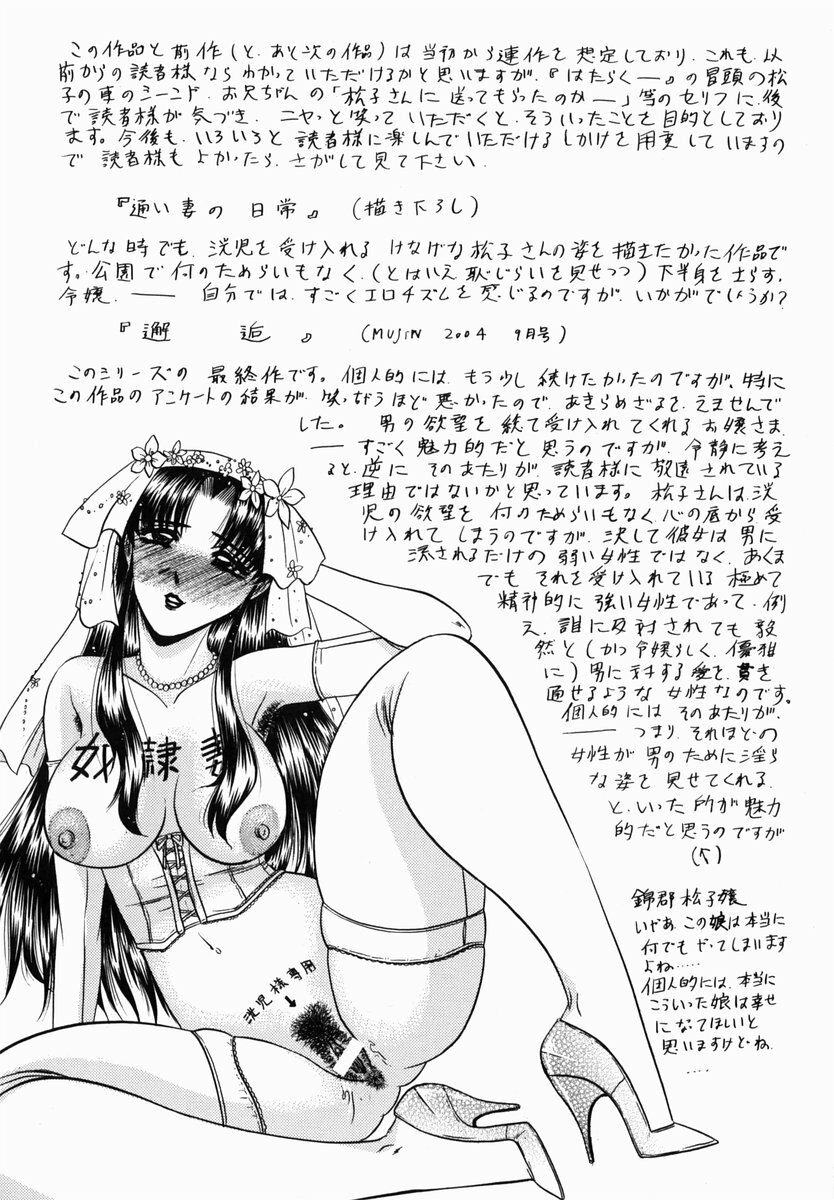 この作品と前作(と、あと次の作品)は当初から連作を想定しており、これも、以
前からの読者様ならわかっていただけるかと思いますが、『はたらく――』の冒頭の松
子の車のシーンド、お兄ちゃんの「松子さんに送ってもらったのか―」等のセリフに、後
で読者様が気づき、ニヤッと笑っていただくと、そういったことを目的としてお
ります。今後も、いろいろと読者様に楽しんでいただけるしかけを用意していますの
で読者様もよかったら、さがして見て下さい。
『通い妻の日常』(描き下ろし)
どんな時でも、洸児を受け入れるけなげな松子さんの姿を描きたかった作品で
す。公園で何のためらいもなく、(とはいえ恥じらいを見せつつ)下半身を土らす。
令嬢、―― 自分では、すごくエロチズムを感じるのですが、いかがでしょうか?
『邂逅』(MUJIN 2004 9月号)
このシリーズの最終作です。個人的には、もう少し続けたかったのですが、特に
この作品のアンケートの結果が、笑っちゃうほど悪かったので、あきらめざるを、えませんで
した。男の欲望を総て受け入れてくれるお嬢さま、
――すごく魅力的だと思うのですが、令静に考え
ると、逆にそのあたりが、読者様に敬遠されている
理由ではないかと思っています。松子さんは、洸
児の欲望を何のためらいもなく、心の底から受
け入れてしまうのですが、決して彼女は男に
流されるだけの弱い女性ではなく、あくま
でもそれを受け入れている極めて
精神的に強い女性であって、例
え、誰に反対されても毅
然と(かつ令嬢らしく、優雅
に)男に対する愛を貫き
通せるような女性なのです。
個人的にはそのあたりが、
――つまり、それほどの
女性が男のために淫ら
な姿を見せてくれる、
と、いった所が魅力
的だと思うのですが
奴隷妻
洸児様専用
錦郡松子嬢
いやあ、この娘は本当に
何でもやってしまいます
よね……
個人的には、本当に
こういった娘は幸せ
になってほしいと
思いますけどね、
‥‥